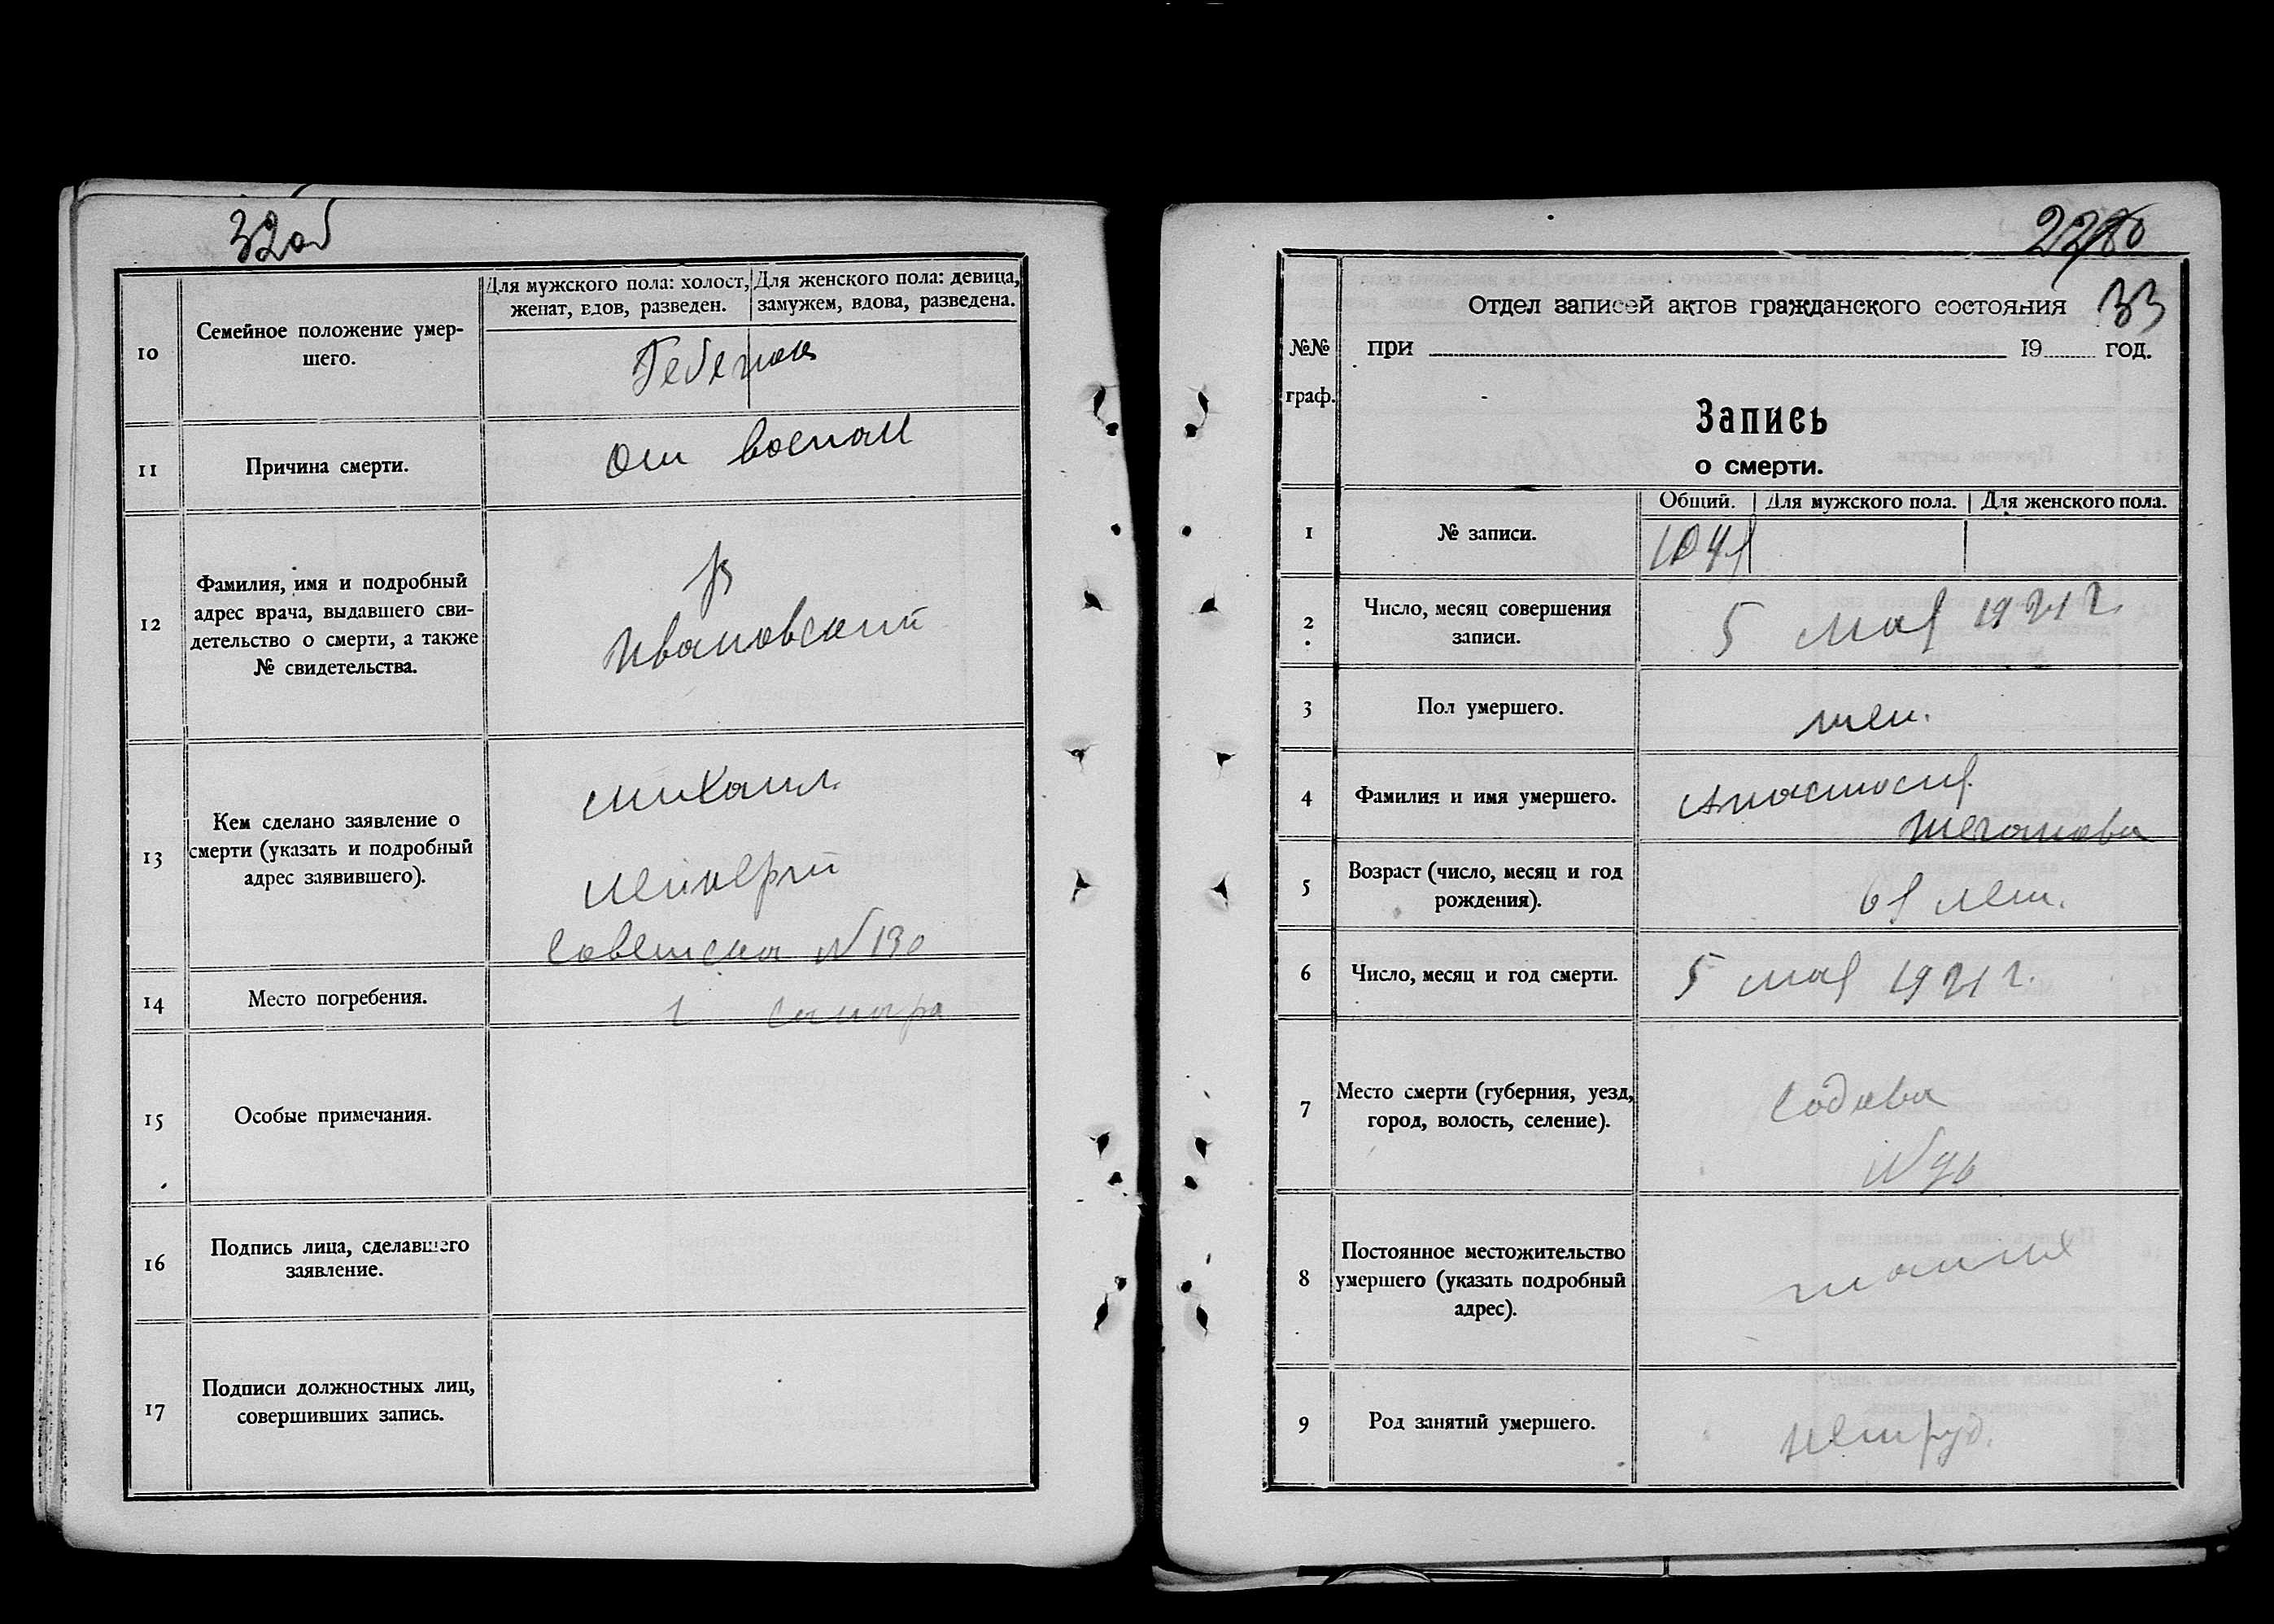 32об
10
Семейное положение умер-
шего.
Для мужского пола: холост,
женат, вдов, разведен.
Для женского пола: девица,
замужем, вдова, разведена.
11
Причина смерти.
От воспал
12
Фамилия, имя и подробный
адрес врача, выдавшего сви-
детельство о смерти, а также
№ свидетельства.
Ивановский
13
Кем сделано заявление о
смерти (указать и подробный
адрес заявившего).
Михаил
Советска N 130
14
Место погребения.
г Самара
15
Особые примечания.
16
Подпись лица, сделавшего
заявление.
17
Подписи должностных лиц,
совершивших запись.
33
№№
граф.
Отдел записей актов гражданского состояния
при 19 год.
Запись
о смерти.
Общий. Для мужского пола. Для женского пола.
1
№ записи.
2
Число, месяц совершения
записи.
5 мая 1921 г.
3
Пол умершего.
жен.
4
Фамилия и имя умершего.
Анастасия
5
Возраст (число, месяц и год
рождения).
лет.
6
Число, месяц и год смерти.
5 мая 1921 г.
7
Место смерти (губерния, уезд,
город, волость, селение).
8
Постоянное местожительство
умершего (указать подробный
адрес).
9
Род занятий умершего.
нетруд.